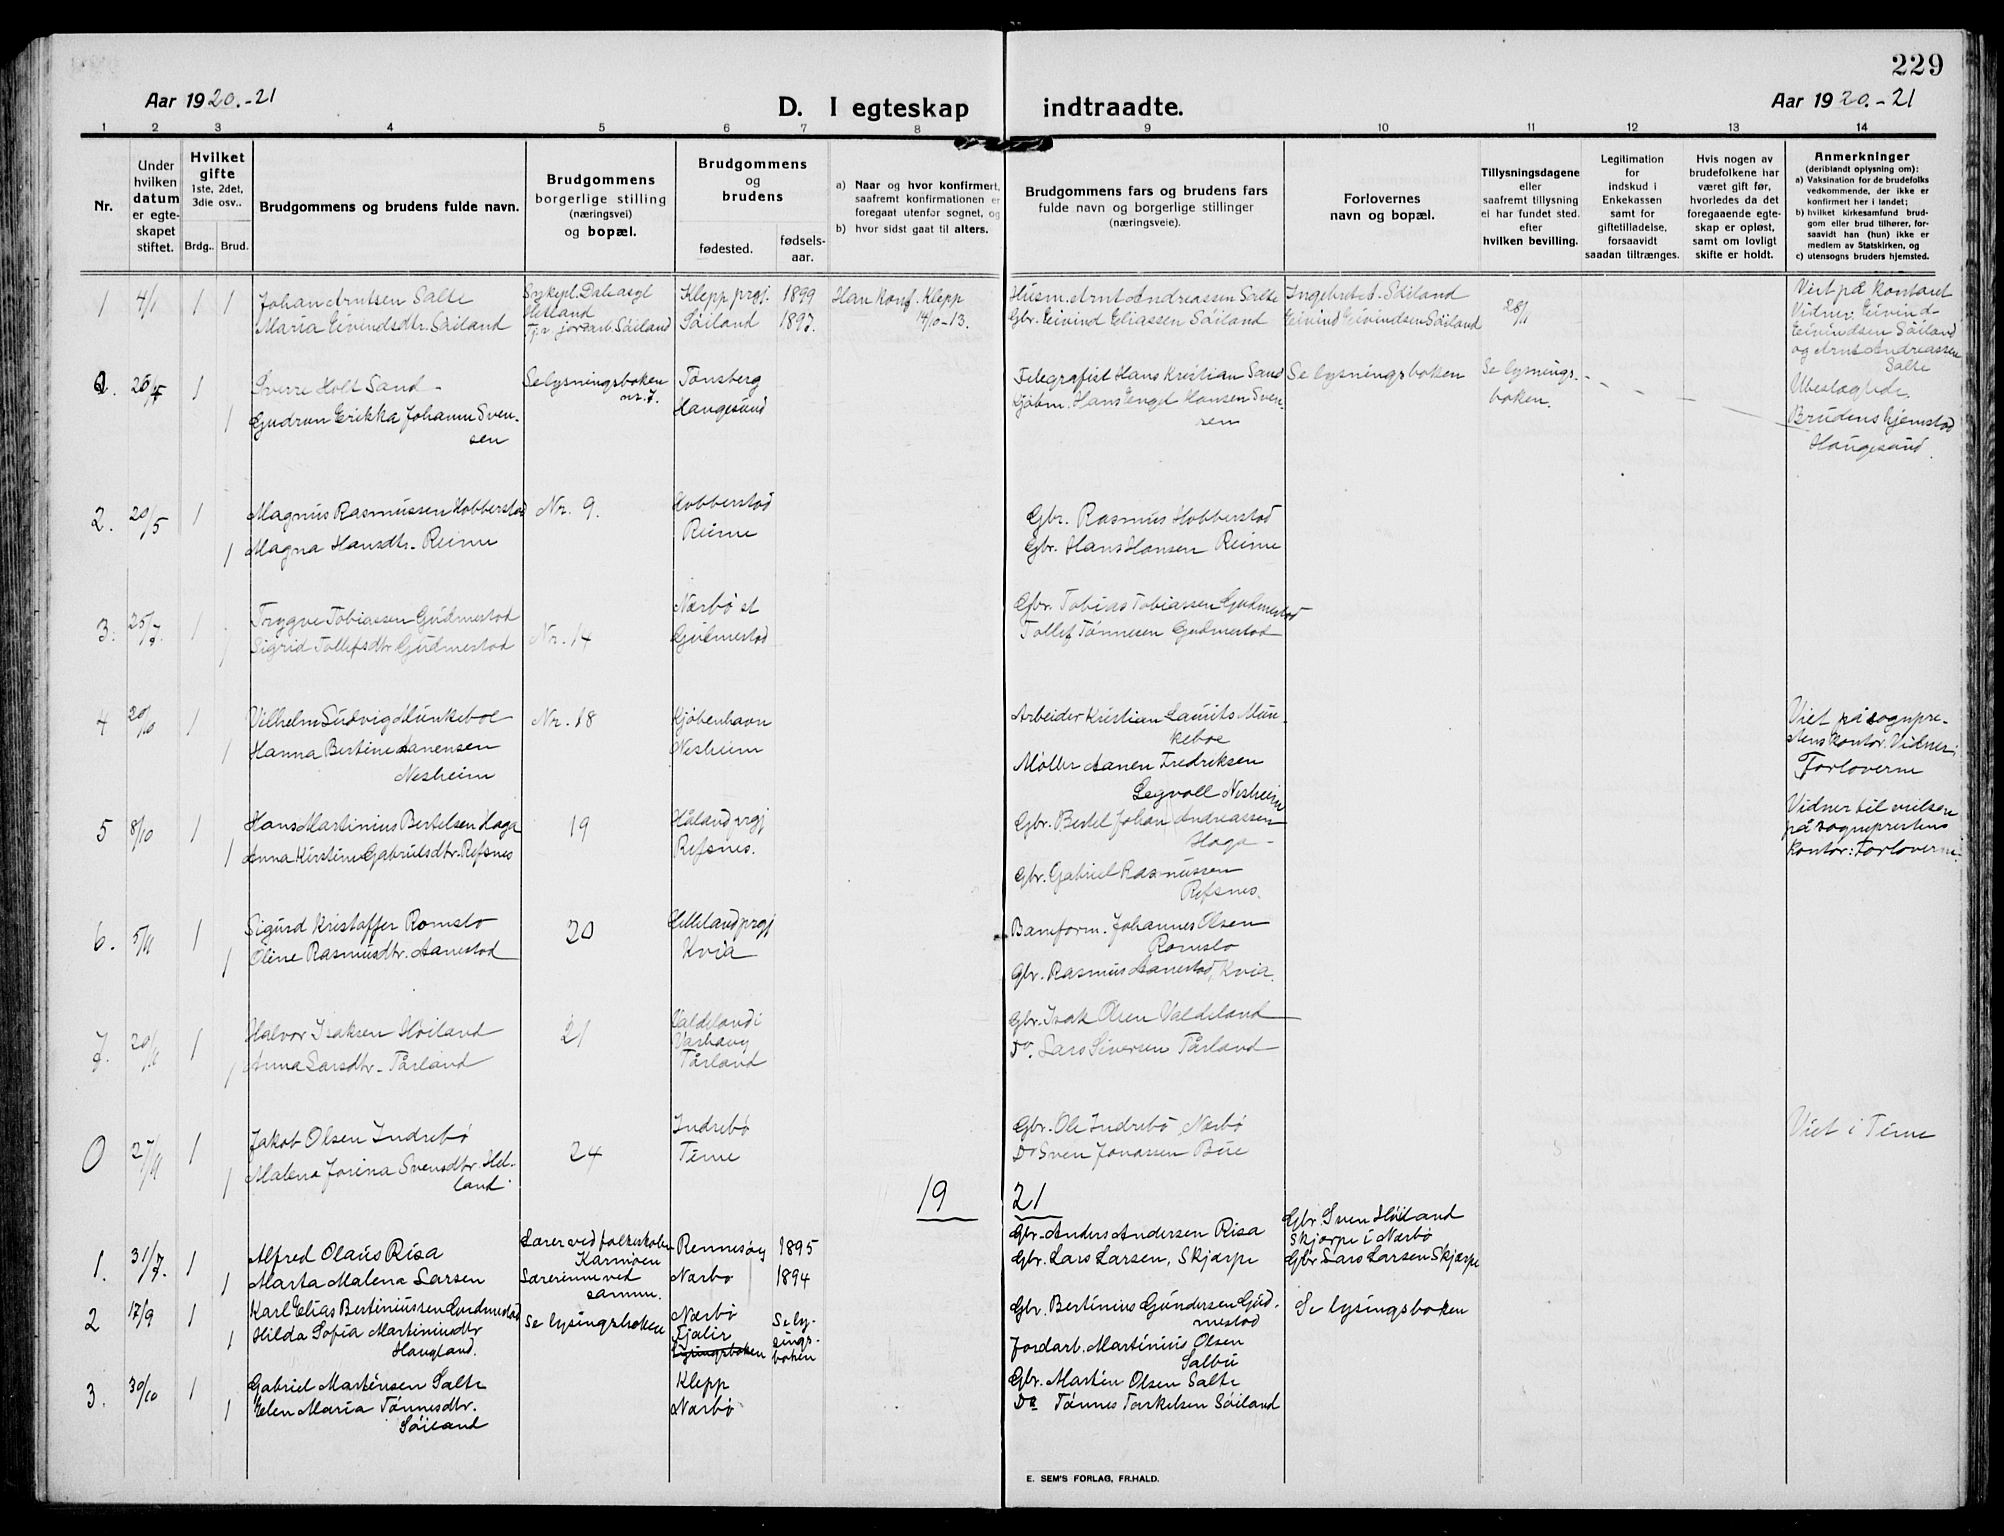 229
Aar 1920.-21
D. I egteskap indtraadte.
Aar 1920.-21
1 2 3 4 5 6 7 8 9 10 11 12 13 14
Nr.
Under hvilken datum er egte-skapet stiftet.
Hvilket gifte 1ste, 2det, 3die osv..
Brdg.. Brud.
Brudgommens og brudens fulde navn.
Brudgommens borgerlige stilling (næringsvei) og bopæl.
Brudgommens og brudens
fødested.
fødsels-aar.
a) Naar og hvor konfirmert, saafremt konfirmationen er foregaat utenfor sognet, og
b) hvor sidst gaat til alters.
Brudgommens fars og brudens fars fulde navn og borgerlige stillinger (næringsveie).
Forlovernes navn og bopæl.
Tillysningsdagene eller saafremt tillysning ei har fundet sted. efter hvilken bevilling.
Legitimation for indskud i Enkekassen samt for giftetilladelse, forsaavidt saadan tiltrænges.
Hvis nogen av brudefolkene har været gift før, hvorledes da det foregaaende egte-skap er opløst, samt om lovligt skifte er holdt.
Anmerkninger (deriblandt oplysning om):
a) Vaksination for de brudefolks vedkommende, der ikke er konfirmert her i landet;
b) hvilket kirkesamfund brud-gom eller brud tilhører, for-saavidt han (hun) ikke er medlem av Statskirken, og
c) utensogns bruders hjemsted.
1 4/1 1 1 Johan Arntsen Salte Klepp prgj. 1899 Han konf. Klepp Husm. Arnt Andreassen Salte Ingebret A. Söiland Viet på kontoret
Maria Eivindsdtr. Söiland Söiland 1897. 14/10-13. Gbr. Eivind Eliassen Söiland Eivind Eivindsen Söiland 28/11 Vidner: Eivind
Eivindsen Söiland
og Arnt Andreassen
Salte
1 Sverre Holt Sand - Se lysningsboken Tönsberg Telegrafist Hans Kristian Sand Se lysningsboken Se lysnings- Ubeslegtede.
nr. 7.
1 Gudrun Erikka Johanne Sven- Haugesund Kjöbm. Hans Engel Hansen Sven- boken. Brudens hjemsted
sen sen Haugesund.
2. 20/5 1 Magnus Rasmussen Hobberstad Nr. 9. Hobberstad Gbr. Rasmus Hobberstad
1 Magna Hansdtr. Reime Reime Gbr. Hans Hansen Reime
3. 25/7. 1 Trygve Tobiassen Gudmestad Nærbö st Gbr. Tobias Tobiassen Gudmestad
1 Sigrid Tollefsdtr Gudmestad Nr. 14 Gudmestad Tollef Tönnesen Gudmestad
4 20/10 1 Vilhelm Ludvig Munkeboe Nr. 18 Kjöbenhavn Arbeider Kristian Laurits Mun- Viet på sognepre-
keboe stens kontor. Vidner:
1 Hanna Bertine Aanensen Nesheim Möller Aanen Fredriksen Forloverne
Nesheim Legvoll Nesheim
5 8/10 1 Hans Martinius Bertelsen Haga 19 Håland prgj Gbr. Bertel Johan Andreassen Vidner til vielsen
Haga - på sogneprestens
1 Anna Kirstine Gabrielsdtr. Refsnes Refsnes. Gbr. Gabriel Rasmussen kontor: Forloverne.
Refsnes.
6. 5/11 1 Sigurd Kristoffer Romslo 20 Helleland prgj Baneform. Johannes Olsen
Romslo
1 Oline Rasmusdtr. Aanestad Kvia Gbr. Rasmus Aanestad, Kvia
7. 20/11 1 Halvor Isaksen Höiland 21 Valdeland i Gbr. Isak Olsen Valdeland
Varhaug
1 Anna Larsdtr. Tårland Tårland Do. Lars Sivertsen Tårland
0 27/11 1 Jakob Olsen Indrebö Indrebö Gbr. Ole Indrebö Nærbö Viet i Time
1 Malena Jorina Svensdtr. Hel- 24 Time Do Sven Jonassen Bue
land.
19 21
1. 31/7. 1 Alfred Olaus Risa Lærer ved folkeskolen Rennesöy 1895 Gbr. Anders Andersen Risa Gbr. Sven Höiland
Karmöen Skjærpe i Nærbö
1 Marta Malena Larsen Lærerinne ved samm. Nærbö 1894 Gbr. Lars Larsen, Skjærpe Gbr Lars Larsen Skjærpe
2 17/9 1 Karl Elias Bertiniussen Gudmestad Se lysingsboken Nærbö Se ly- Gbr. Bertinius Gundersen Gud- Se lysingsboken
mestad
1 Hilda Sofia Martiniusdtr Fjalir sings- Jordarb. Martinius Olsen
Haugland. lysingsboken boken Salbu
3. 30/10 1 Gabriel Martinsen Salte Klepp Gbr. Martin Olsen Salte
1 Elen Maria Tönnesdtr. Nærbö Do Tönnes Torkelsen Söiland
Söiland
E. SEM'S FORLAG, FR.HALD.